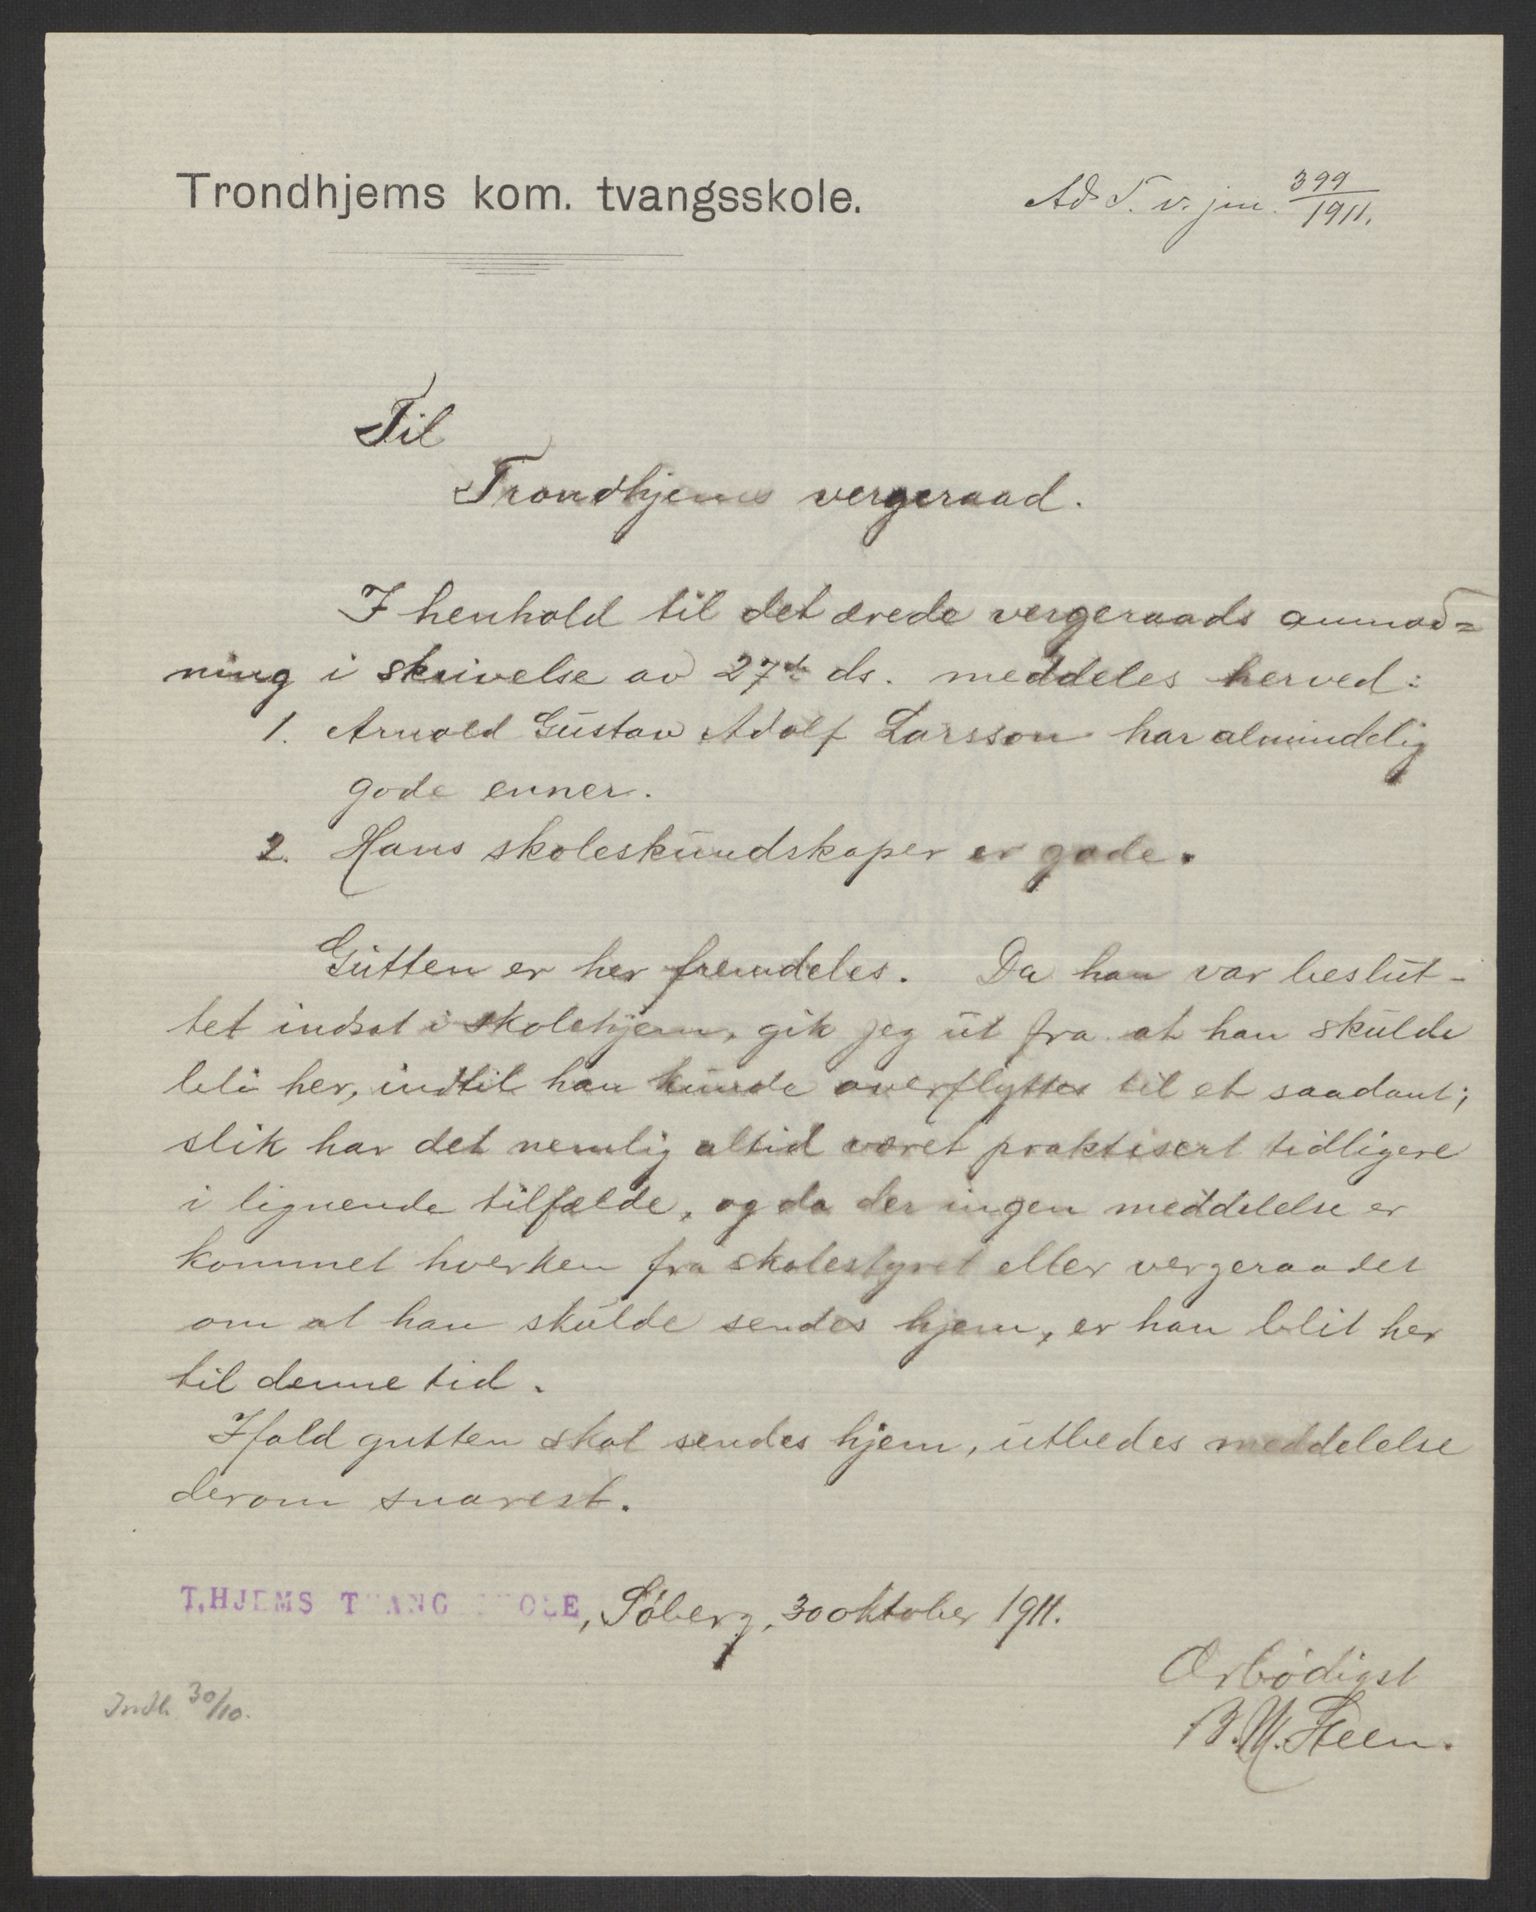 Trondhjems kom. tvangsskole.
Ad T. v. jnr. 399/1911.
Til
Trondhjems vergeraad.
I henhold til det ærede vergeraads anmod=
ning i skrivelse av 27de ds. meddeles herved:
1. Arnold Gustav Adolf Larsson har almindelig
gode evner.
2. Hans skolekundskaper er gode.
Gutten er her fremdeles. Da han var beslut-
tet indsat i skolehjem, gik jeg ut fra at han skulde
bli her, indtil han kunde overflyttes til et saadant;
slik har det nemlig altid været praktisert tidligere
i lignende tilfælde, og da der ingen meddelelse er
kommet hverken fra skolestyret eller vergeraadet
om at han skulde sendes hjem, er han blit her
til denne tid.
Ifald gutten skal sendes hjem, utbedes meddelelse
derom snarest.
T.HJEMS TVANGSSKOLE, Søberg, 30 oktober 1911.
Ærbødigst
B. M. Steen.
Indk. 30/10.